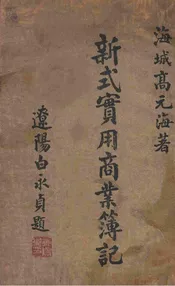 海城高元海著
新式實用商業簿記
遼陽白永貞題